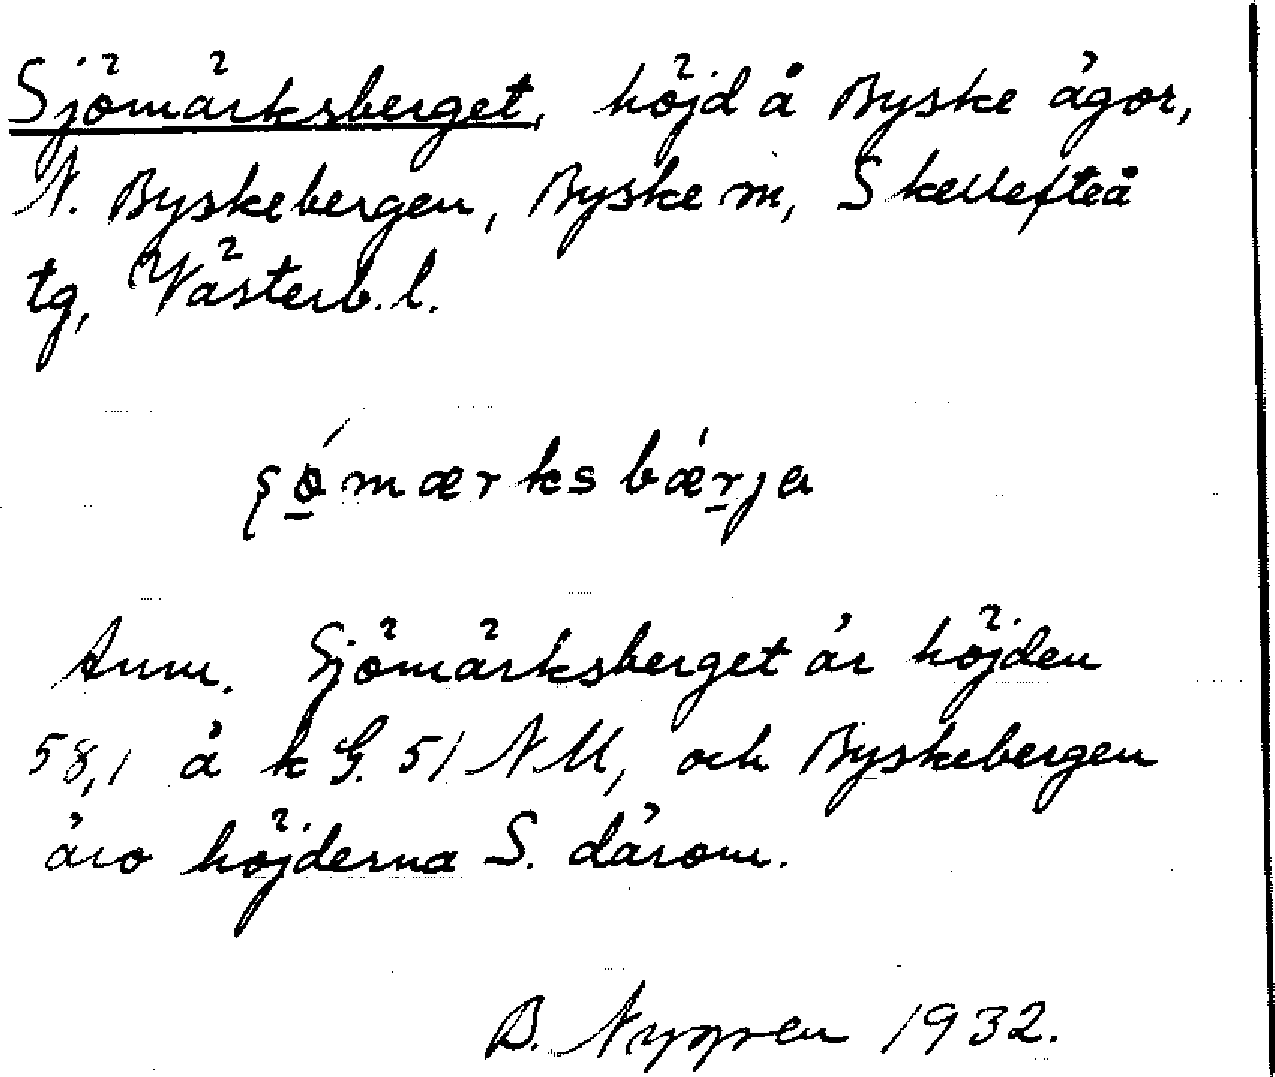 Sjömärksberget, höjd å Byske ägor,
N. Byskebergen, Byske sn, Skellefteå
tg, Västerb. l.
ʂǿmærksbǽrja
Anm. Sjömärksberget är höjden
58,1 å k G. 51 NM, och Byskebergen
äro höjderna S. därom.
B. Nygren 1932.